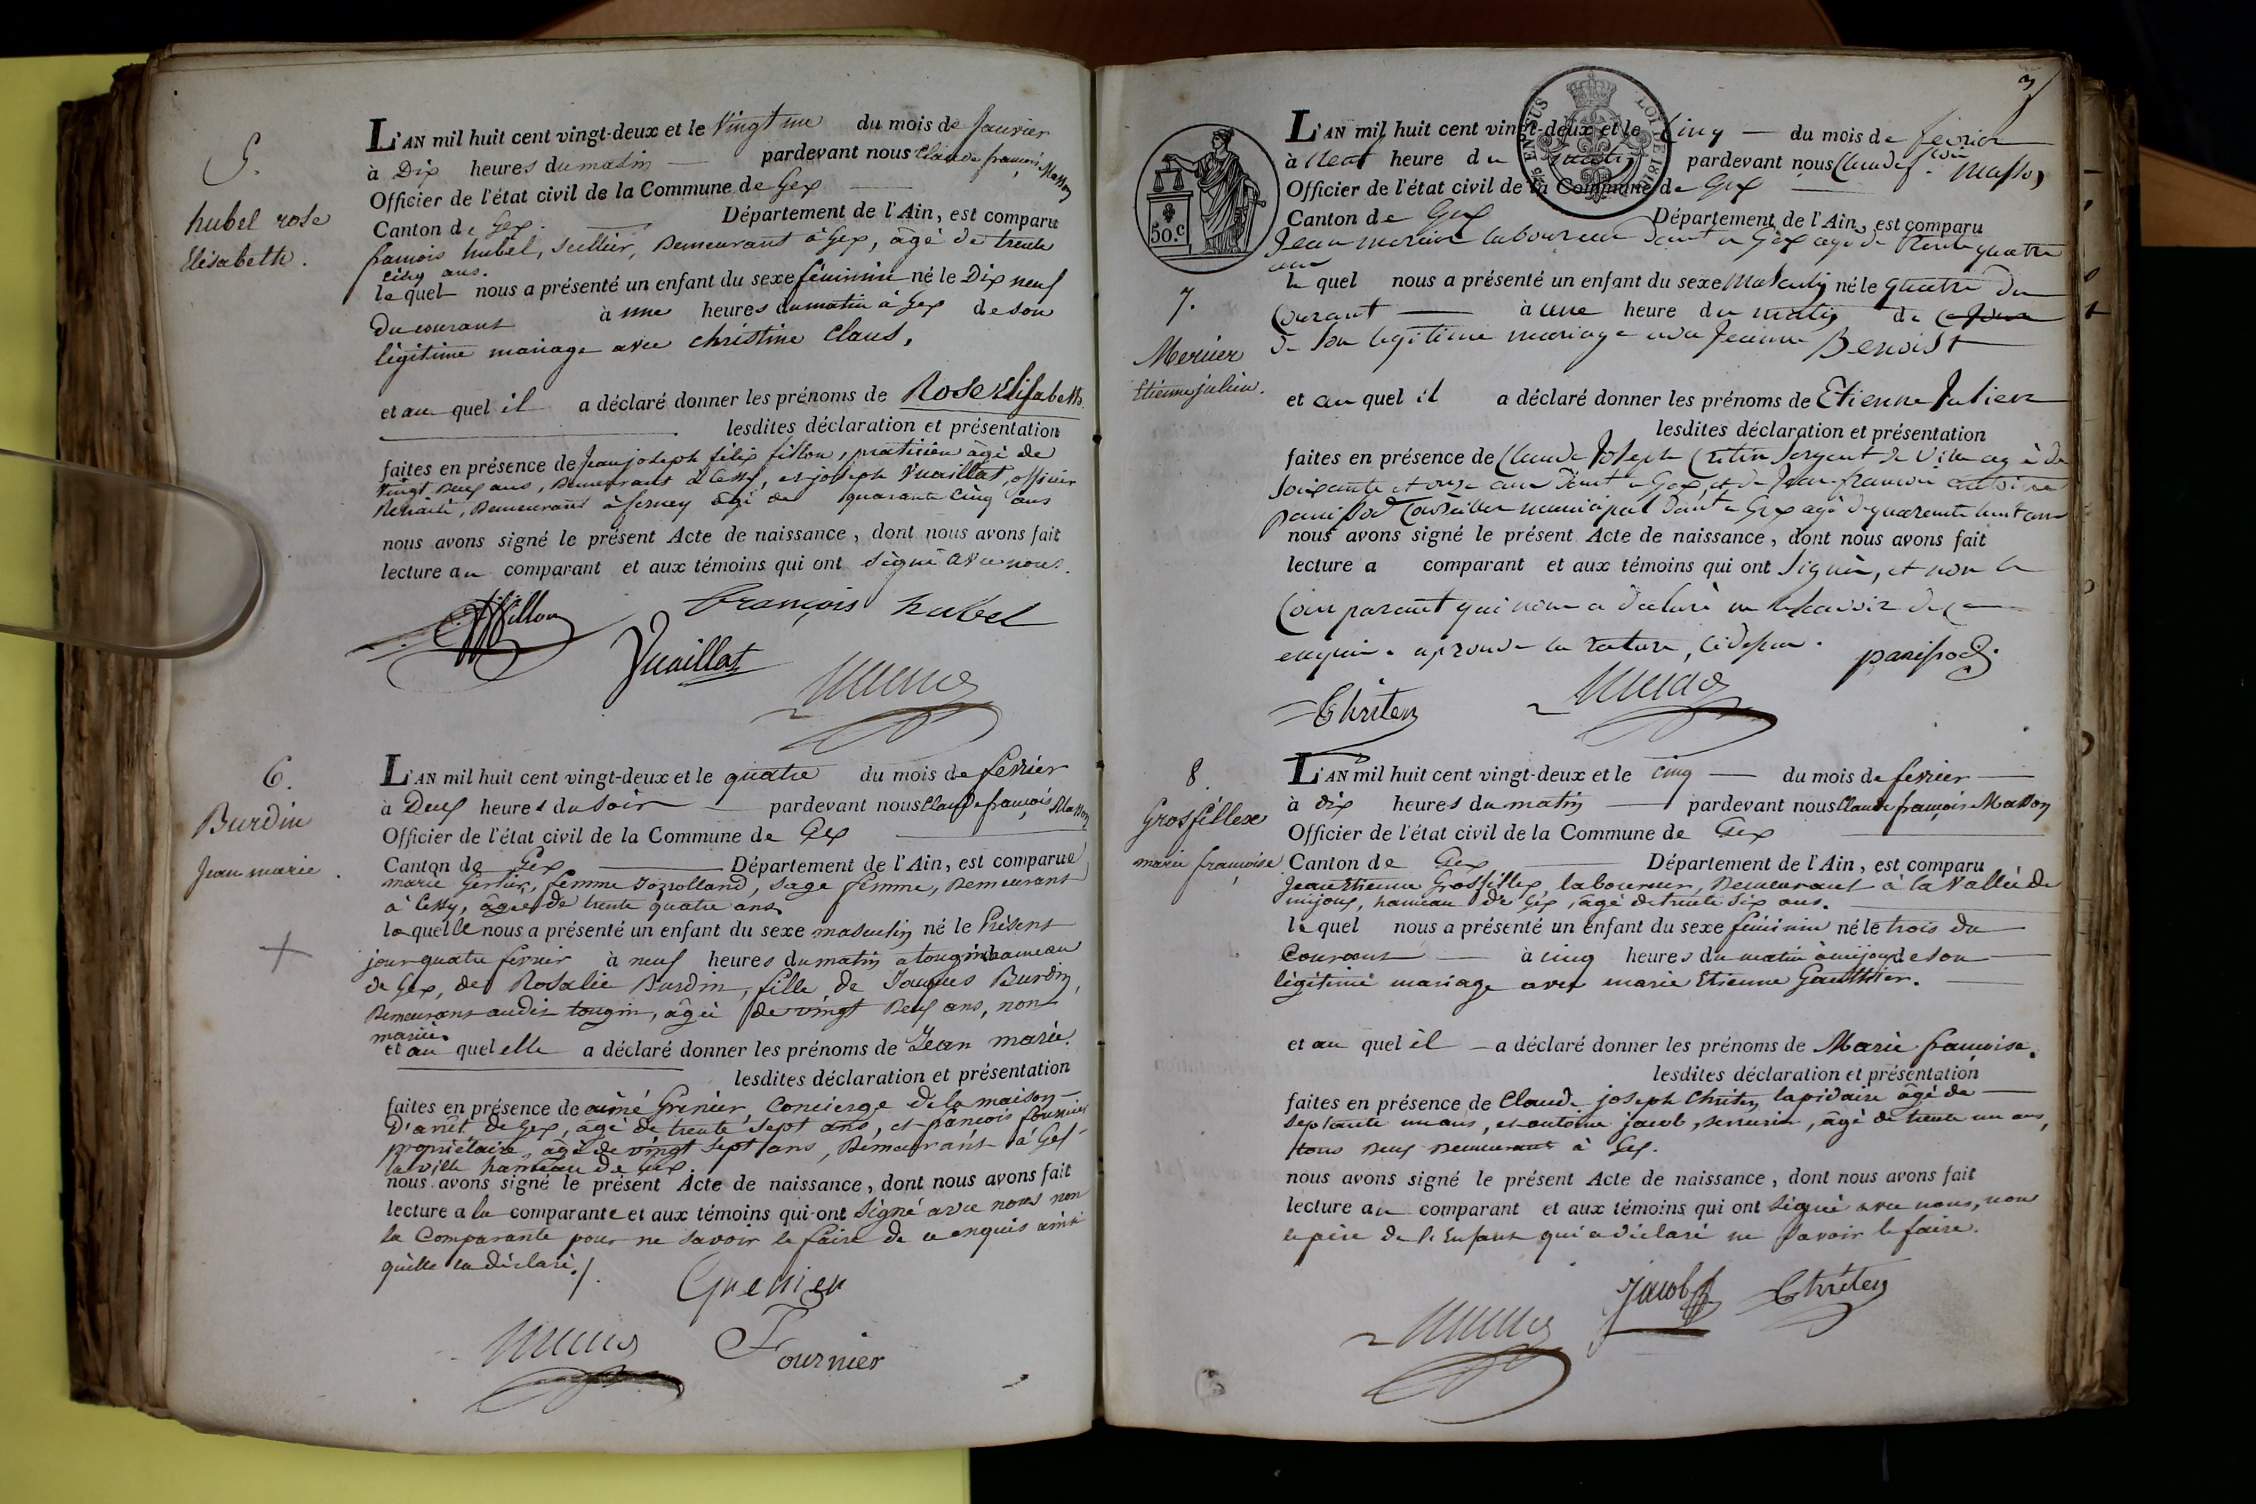 5.
hubel rose
Elisabeth.
L'AN mil huit cent vingt-deux et le Vingt un du mois de Janvier
à Dix heures du matin pardevant nous Claude françois Masson
Officier de l'état civil de la Commune de Gex
Canton de Gex. Département de l'Ain, est comparu
françois hubel, sellier, demeurant à Gex, âgé de trente
cinq ans.
le quel nous a présenté un enfant du sexe féminin né le Dix neuf
du courant à une heures du matin à Gex de son
légitime mariage avec christine Claus,
et au quel il a déclaré donner les prénoms de Rose Elisabeth
lesdites déclaration et présentation
faites en présence de Jean joseph félix fillon, praticien âgé de
vingt deux ans, demeurant à Cessy, et joseph Vuaillat, officier
Retraité, demeurant à ferney âgé de quarante cinq ans
nous avons signé le présent Acte de naissance, dont nous avons fait
lecture au comparant et aux témoins qui ont signé avec nous.
fillon françois hubel
Vuaillat
6.
Burdin
Jean marie.
L'AN mil huit cent vingt-deux et le quatre du mois de fevrier
à Deux heures du soir pardevant nous Claude françois Masson
Officier de l'état civil de la Commune de Gex
Canton de Gex Département de l'Ain, est comparue
marie Gerlier, femme, sage femme, demeurant
à Cessy, âgée de trente quatre ans
laquelle nous a présenté un enfant du sexe masculin né le Présent
jour quatre fevrier à neuf heures du matin a tougin hameau
de Gex, de Rosalie Burdin, fille de Jacques Burdin,
Demeurant audit tougin, âgée de vingt Deux ans, non
mariée.
et au quel elle a déclaré donner les prénoms de Jean marie.
lesdites déclaration et présentation
faites en présence de aimé Grenier, Concierge de la maison
D'arrêt de Gex, âgé de trente sept ans, et francois fournier
propriétaire, âgé de vingt sept ans, Demeurant à Gex
la ville hameau de Gex
nous avons signé le présent Acte de naissance, dont nous avons fait
lecture a la comparante et aux témoins qui ont Signé avec nous non
la Comparante pour ne savoir le faire de ce enquis ainsi
qu'elle la déclaré./.
Grenier
Fournier
3
TIMBRE EN SUS
LOI DE 1816
50.c
7.
Mercier
Etienne julien.
L'AN mil huit cent vingt-deux et le Cinq du mois de fevrier
à Neuf heure du matin pardevant nous Claude f.ois Masson
Officier de l'état civil de la Commune de Gex
Canton de Gex Département de l'Ain, est comparu
Jean mercier laboureur Dant a Gex agé de trente quatre
ans
le quel nous a présenté un enfant du sexe Masculin né le quatre Du
Courant à une heure du matin de ce jour
de son legitime mariage avec Jeanne Benoist
et au quel il a déclaré donner les prénoms de Etienne Julien
lesdites déclaration et présentation
faites en présence de Claude Joseph Cretin Sergent de Ville agé de
Soixante et onze ans Dant a Gex, et de Jean francois antoine
panissod Conseiller municipal Dant a Gex agé de quarante huit ans
nous avons signé le présent Acte de naissance, dont nous avons fait
lecture a comparant et aux témoins qui ont signé, et non le
Comparant qui nous a déclaré ne le savoir de ce
enquis. aprouvé la rature, ci dessus. panissod
Chriten
8.
Grosfillex
marie françoise
L'AN mil huit cent vingt-deux et le cinq du mois de fevrier
à dix heures du matin pardevant nous Claude françois Masson
Officier de l'état civil de la Commune de Gex
Canton de Gex Département de l'Ain, est comparu
Jean Etienne Grosfillex, laboureur, Demeurant à la Vallée de
mijoux, hameau de Gex, âgé de trente six ans.
le quel nous a présenté un enfant du sexe féminin né le trois du
Courant à cinq heures du matin à mijoux de son
légitime mariage avec marie Etienne Gauthier.
et au quel il a déclaré donner les prénoms de Marie françoise.
lesdites déclaration et présentation
faites en présence de Claude joseph Chriten lapidaire âgé de
septante un ans, et antoine jacob, serrurier, âgé de trente un ans,
tous deux demeurant à Gex.
nous avons signé le présent Acte de naissance, dont nous avons fait
lecture au comparant et aux témoins qui ont signé avec nous, non
le père de l'Enfant qui a déclaré ne savoir le faire.
Jacob Chriten